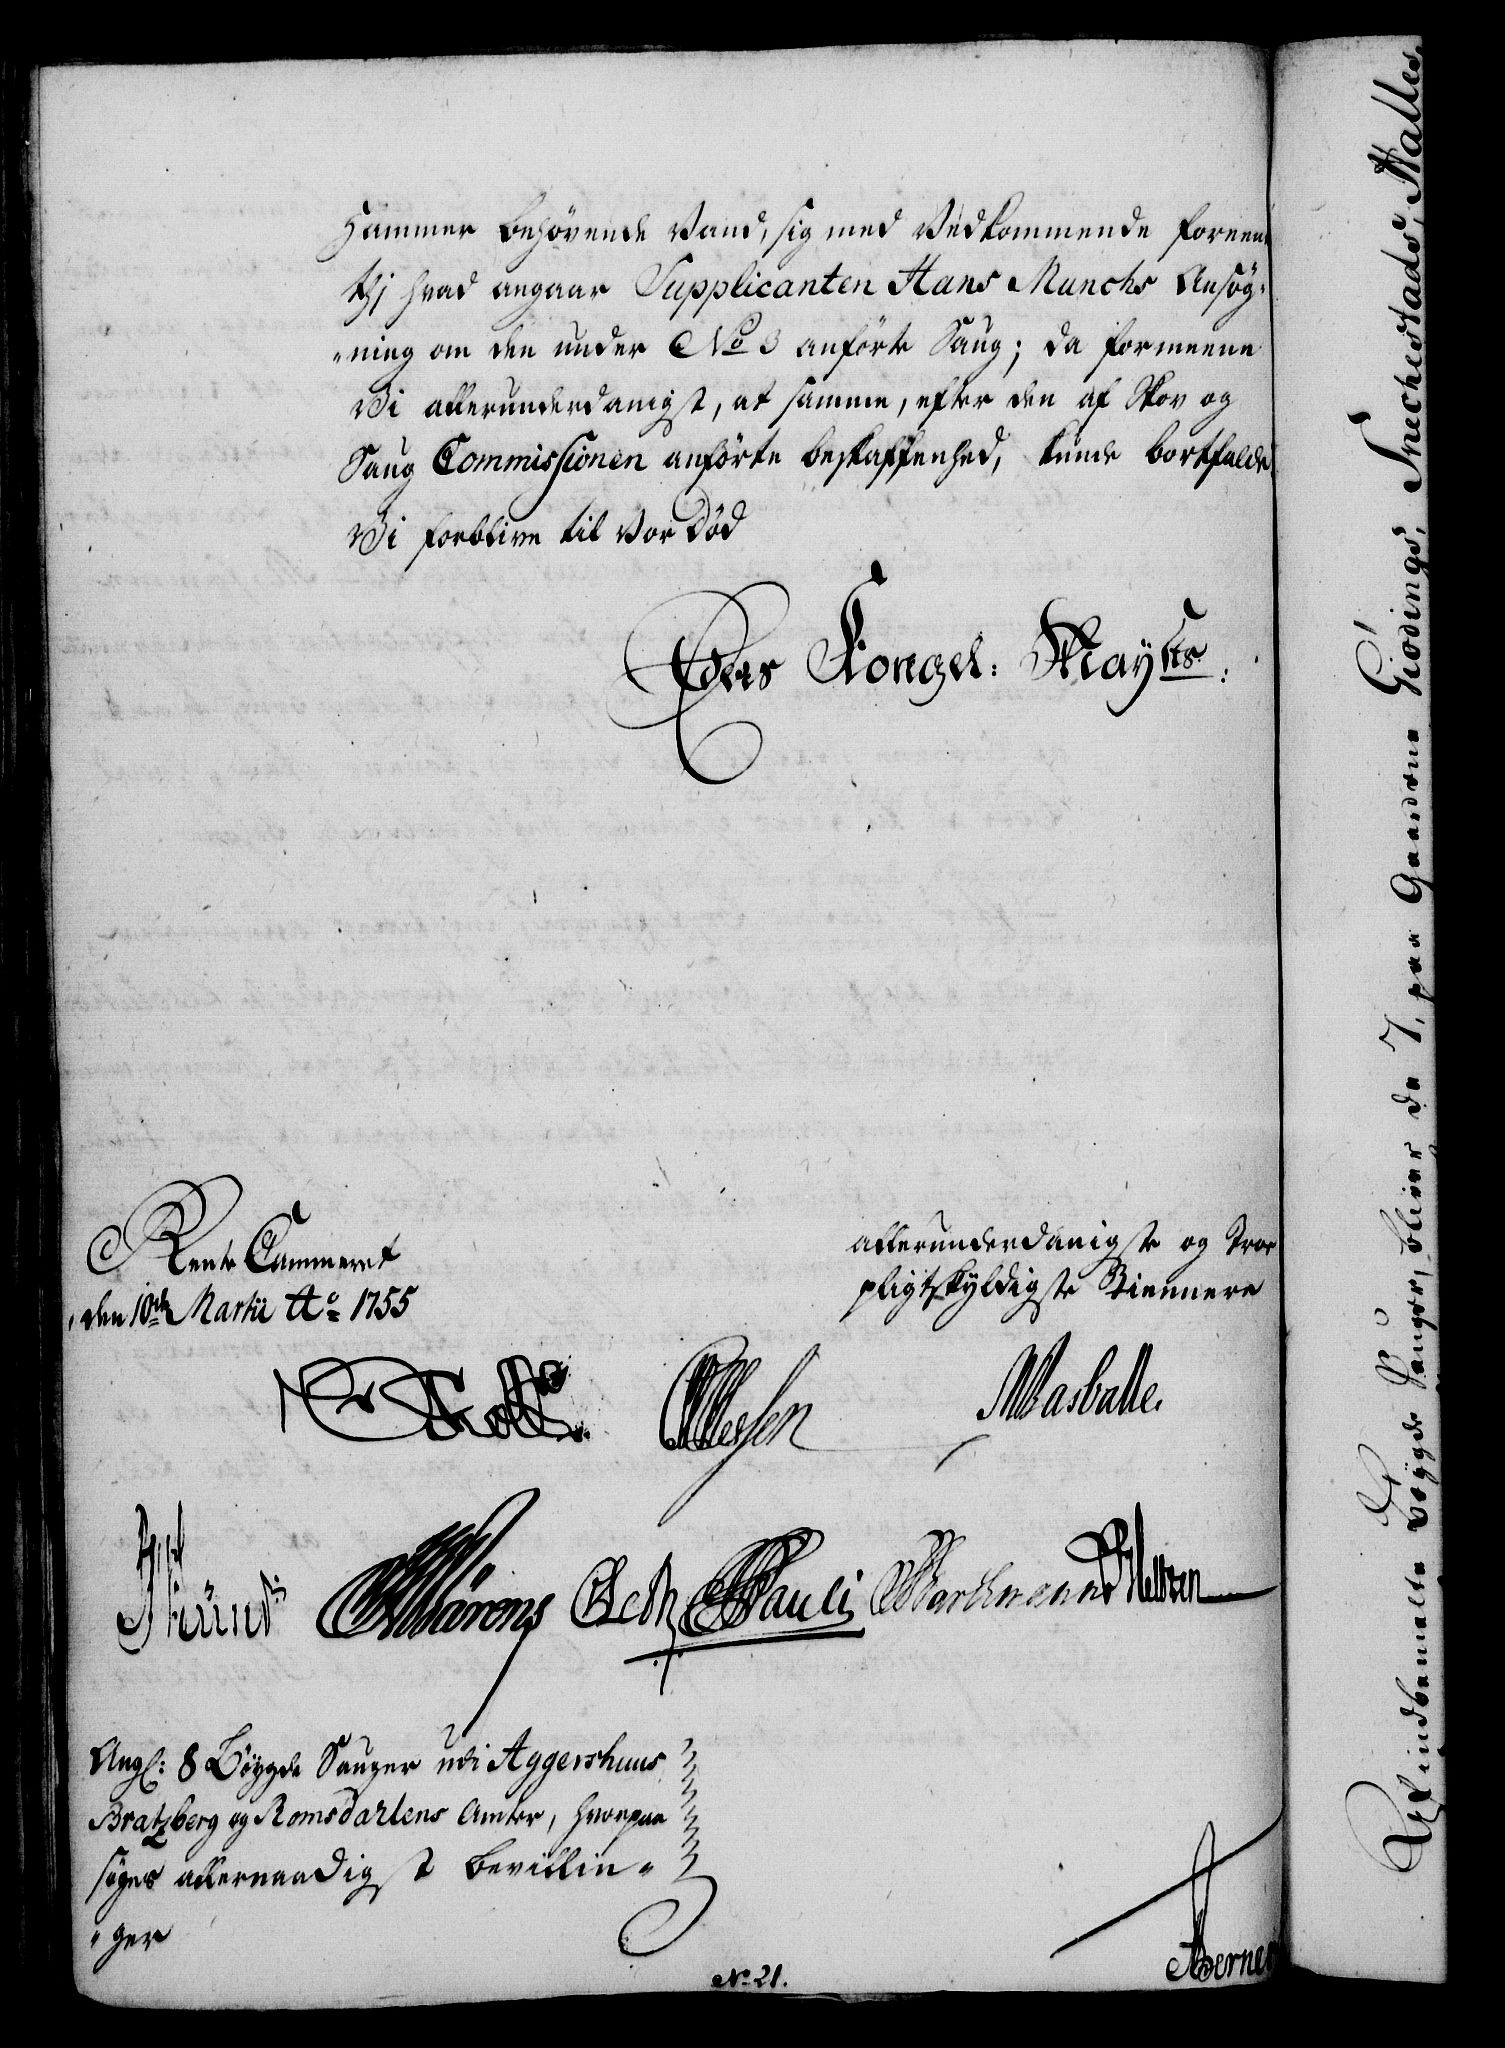 Hammer behövende Vand, sig med Vedkommende foreene
thj hvad angaar Supplicanten Hans Munchs Ansög-
-ning om den under No 3 anförte Saug; da formeene
Vi allerunderdanigst, at samme, efter den af Skov og
Saug Commissionen anförte beskaffenhed, kunde bortfalde
Vi forblive til vor Död
Eders Kongel: Maÿsts:
Rente Cammeret
den 10de Martii Ao 1755
allerunderdanigste og Troe
pligtskyldigste Tiennere
Holst.
Olesen
Masballe.
Wärens Pauli Bartmann
Angl: 8 Böygde Sauger udi Aggershuus
Bratzberg og Romsdahlens Amter, hvorpaa
söges allernaadigst bevillin-
-ger
No 21.
Berner
Afindbemelte 8 böygde Sauger, bliver da 7, paa Gaardene Giödings, Snechestads, Stalles